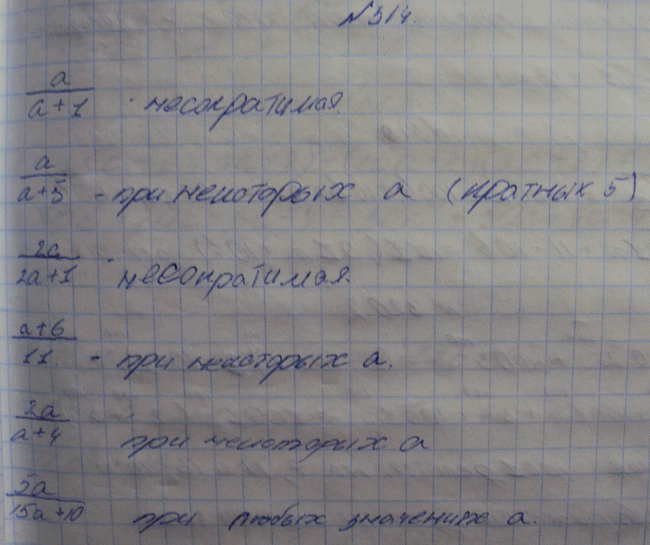 №314.
a/a+1 - несократимая.
a/a+5 - при некоторых a (кратных 5)
2a/2a+1 - несократимая.
a+6/11 - при некоторых a.
2a/a+4 при некоторых a
5a/15a+10 при любых значениях a.